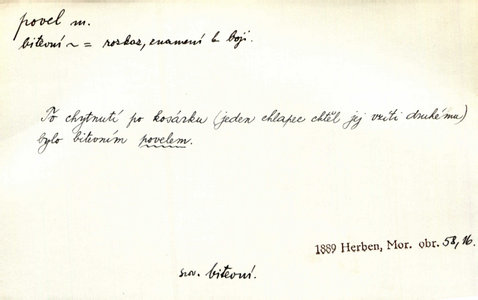 povel m.
bitevní ~ = rozkaz, znamení k boji.
To chytnutí po kosárku (jeden chlapec chtěl jej vzíti druhému)
bylo bitevním povelem.
1889 Herben, Mor. obr. 58, 16.
srov. bitevní.